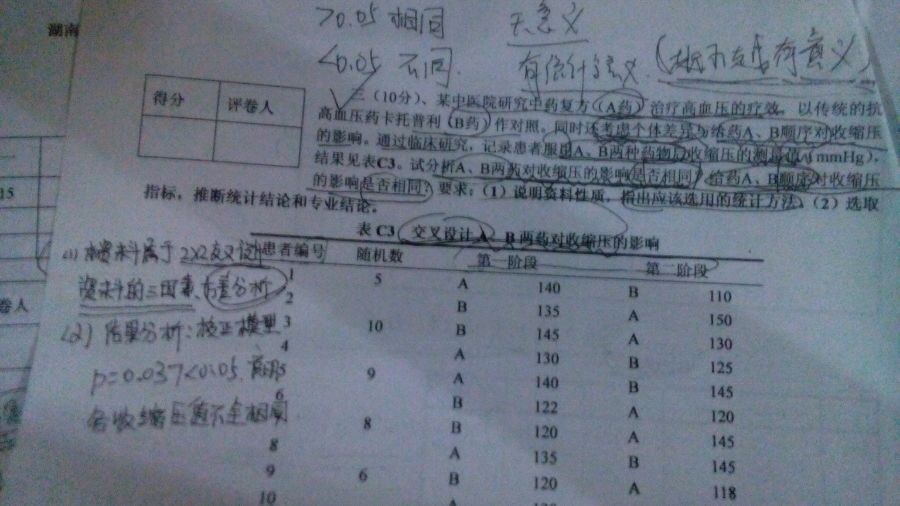 湖南
>0.05 相同 无意义
<0.05 不同. 有统计学意义
得分 评卷人
三(10分)、某中医院研究中药复方(A药)治疗高血压的疗效，以传统的抗
高血压药卡托普利(B药)作对照。同时还考虑个体差异与给药A、B顺序对收缩压
的影响。通过临床研究，记录患者服用A、B两种药物后收缩压的测量值(mmHg)，
结果见表C3。试分析A、B两药对收缩压的影响是否相同？给药A、B顺序对收缩压
的影响是否相同？要求：(1)说明资料性质，指出应该选用的统计方法；(2)选取
指标，推断统计结论和专业结论。
15
表C3 交叉设计A、B两药对收缩压的影响
患者编号 随机数 第一阶段 第二阶段
1 5 A 140 B 110
2 B 135 A 150
3 10 B 145 A 130
4 A 130 B 125
5 9 A 140 B 145
6 B 122 A 120
8 B 120 A 145
8 A 135 B 145
9 6 B 120 A 118
10 A
(1) 本资料属于2X2交叉设计
资料的三因素方差分析
(2) 方差分析：校正模型
p=0.037<0.05.
各收缩压值不全相同
卷人